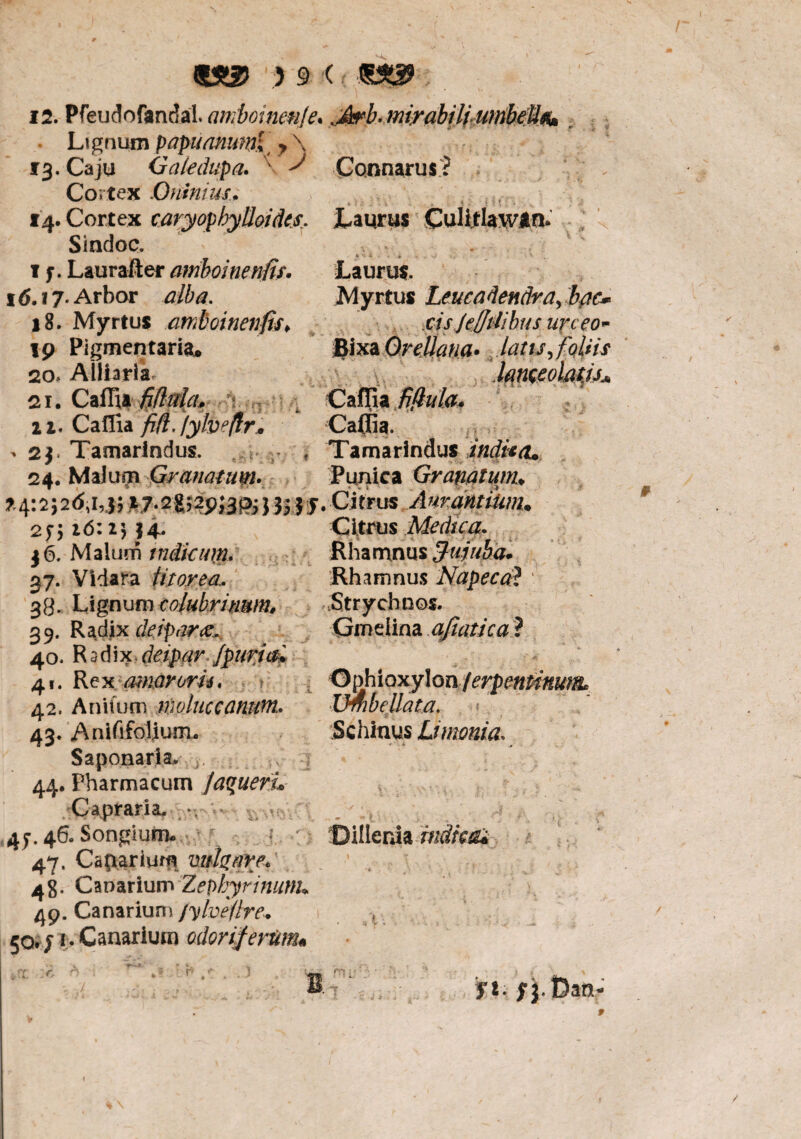 ) 9 (
12. Pſeudoſandal. amboinenſe. Arb. mirabili umbella.
Lignum papuanum.
13. Caju Galedupa. Connarus?
Cortex Oninius.
14. Cortex caryophylloides. Laurus Culitlawan.
Sindoc.
15. Lauraſter amboinenſis. Laurus.
16.17. Arbor alba. Myrtus Leucadendra, bac-
18. Myrtus amboinenſis. cis ſeſſilibus urceo-
19 Pigmentaria. Bixa Orellana. latis, foliis
20. Alliaria lanceolatis.
21. Caſſia fiſtula. Caſſia fiſtula.
22. Caſſia fiſt. ſylveſtr. Caſſia.
23. Tamarindus. Tamarindus indica.
24. Malum Granatum. Punica Granatum.
Citrus Aurantium.
25; 26: 2; 34. Citrus Medica.
36. Malum indicum. Rhamnus Jujuba.
37. Vidara litorea. Rhamnus Napeca?
38. Lignum colubrinum. Strychnos.
39. Radix deiparæ. Gmelina aſiatica?
40. Radix deipar. ſpuria.
41. Rex amaroris. Ophioxylon ſerpentinum.
42. Aniſum moluccanum. Umbellata.
43. Aniſifolium. Schinus Limonia.
Saponaria.
44. Pharmacum ſagueri.
Capraria.
45. 46. Songium. Dillenia indica.
47. Canarium vulgare.
48. Canarium Zephyrinum.
49. Canarium ſylveſtre.
50. 51. Canarium odoriferum.
B 52. 53. Dan-